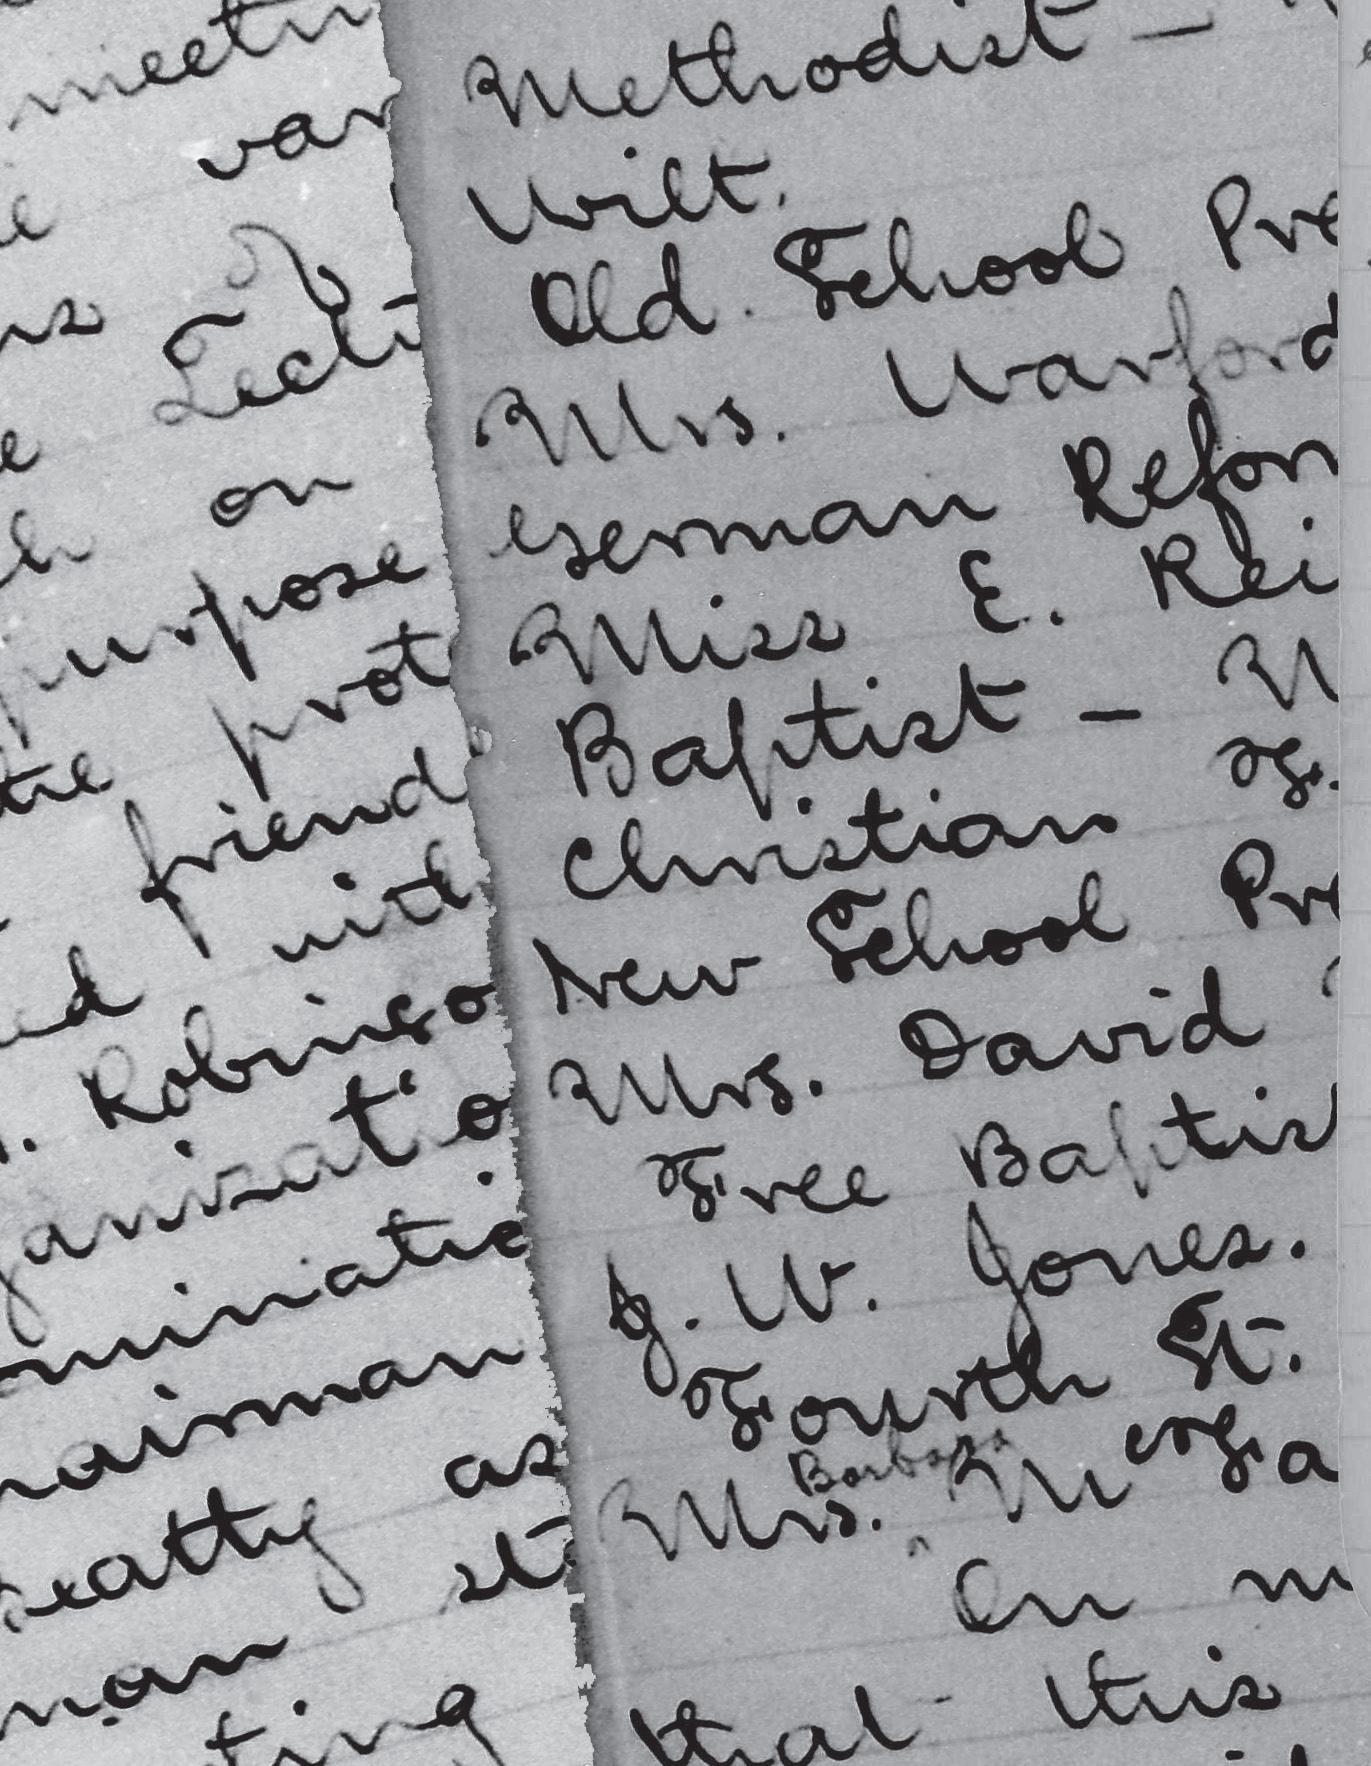 meetin
van
of
Lectu
on
purpose
the prot
friend
with
Robinso
ganizatio
ominatio
hairman
eatty as
man st
ting
Methodist —
Wilt.
Old School Pre
Mrs. Warford
German Refor
Miss E. Rei
Baptist — M
Christian F.
New School Pre
Mrs. David
Free Baptis
J. W. Jones.
Fourth St.
Barbara
Mrs. M
On m
that this